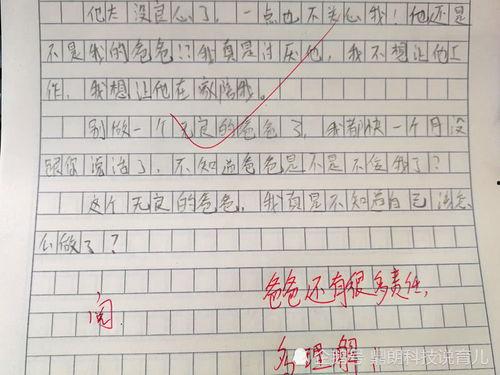 他太没良心了，一点也不关心我！他还是
不是我的爸爸！？我真是讨厌他，我不想让他工
作，我想让他在家陪我。
别做一个无良的爸爸了，我都快一个月没
跟你说话了，不知道爸爸是不是不我了？
这个无良的爸爸，我真是不知道自己该怎
么做了？
爸爸还有很多责任，
阅
多理解！
企鹅号 昊朗科技说育儿